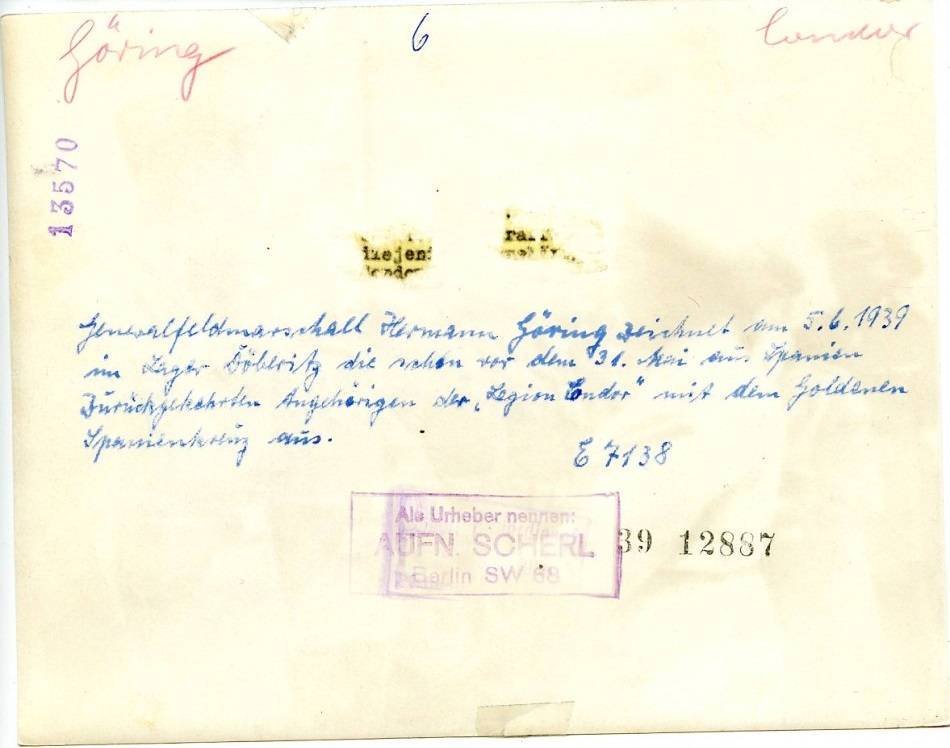 Göring
6
Condor
13570
Generalfeldmarschall Hermann Göring zeichnet am 5.6.1939
im Lager Döberitz die schon vor dem 31. Mai aus Spanien
Zurückgekehrten Angehörigen der „Legion Condor" mit dem Goldenen
Spanienkreuz aus.
E 7138
Als Urheber nennen:
AUFN. SCHERL
Berlin SW 68
39 12887